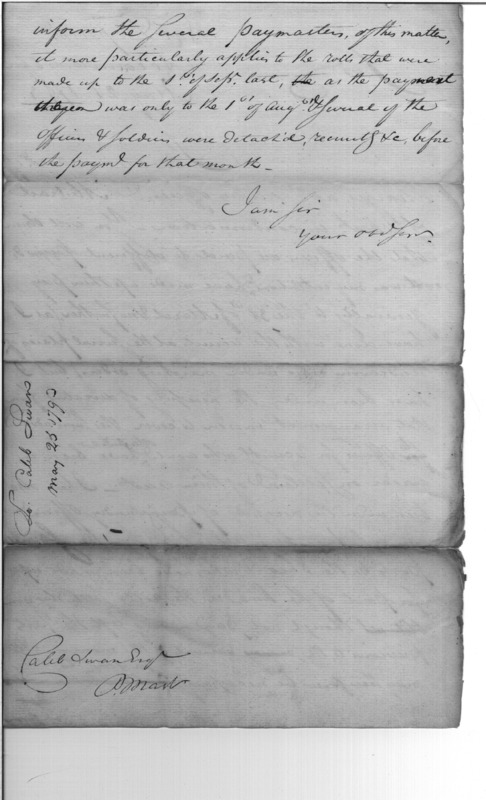 inform the Several paymasters, of this matter,
it more particularly applies to the rolls that were
made up to the 1st of Sepr. last, as the payment
thereon was only to the 1st of Augt. & Several of the
Officers & Soldiers were detach'd, &c, before
the paymt for that month -
I am Sir
Your Obd Serv.
To. Caleb Swan
May 25 1793
Caleb Swan Esqr
P. Mastr